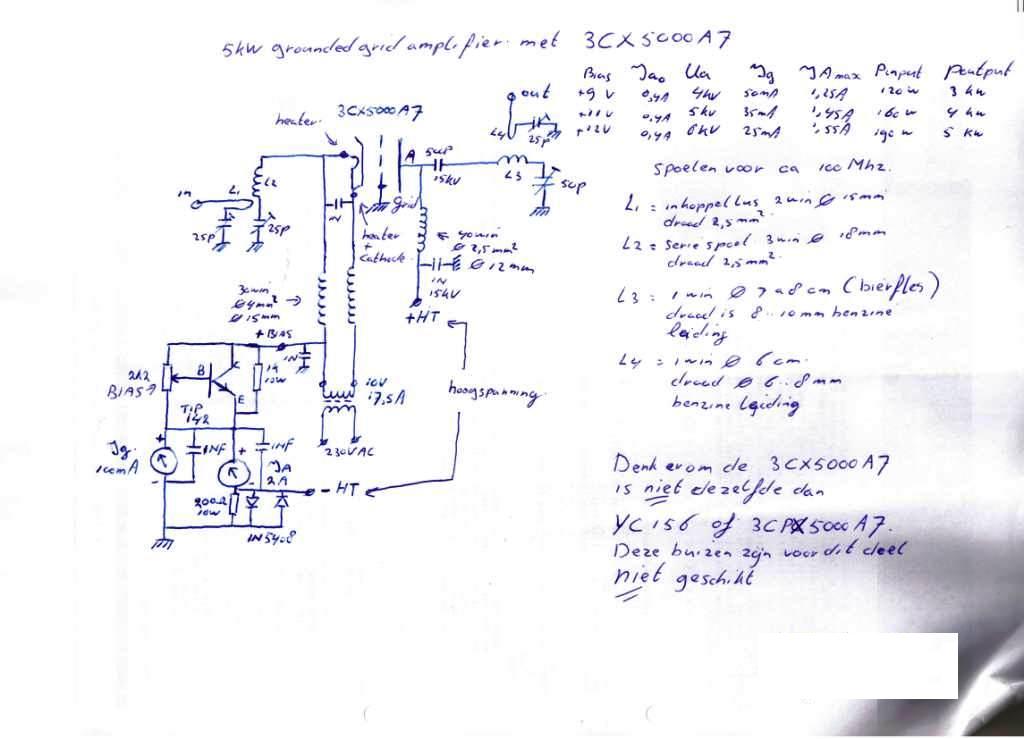 5kW grounded grid amplifier met 3CX5000A7
Bias Jao Ua Jg JA max Pinput Poutput
+9 V 0,4A 4kV 50mA 1,25A 120w 3 kw
+11V 0,4A 5kV 35mA 1,45A 160w 4 kw
+12V 0,4A 6kV 25mA 1,55A 190w 5 kw
out
L4
25p
heater
3CX5000A7
A
5up
15kV
L3
5up
in
L1
L2
25p
25p
1N
Grid
heater
+
cathode
40win
Ø 2,5mm²
Ø 12mm
1N
15kV
+HT
30win
Ø 4mm²
Ø 15mm
+BIAS
1N
2k2
BIAS
B
C
E
TIP
142
1k
10W
10V
17,5A
230VAC
hoogspanning
Jg
100mA
+
-
1NF
+
-
1NF
JA
2A
- HT
200Ω
10W
1N5408
spoelen voor ca 100Mhz.
L1 = inkoppel lus 2win Ø 15mm
draad 2,5mm²
L2 = serie spoel 3win Ø 18mm
draad 2,5mm²
L3 = 1win Ø 7 a 8 cm (bierfles)
draad is 8..10mm benzine
leiding
L4 = 1win Ø 6 cm
draad Ø 6..8mm
benzine leiding
Denk erom de 3CX5000A7
is niet dezelfde dan
YC156 of 3CPX5000A7.
Deze buizen zijn voor dit doel
niet geschikt